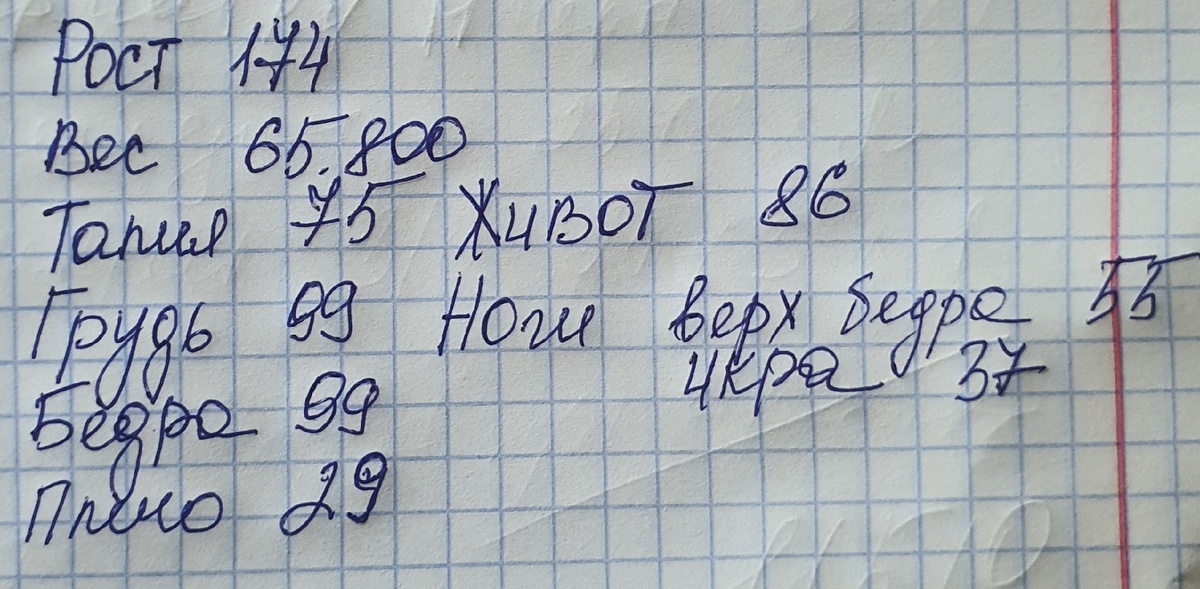 Рост 174
Вес 65.800
Талия 75 Живот 86
Грудь 99 Ноги верх бедра 55
икра 37
Бедра 99
Плечо 29